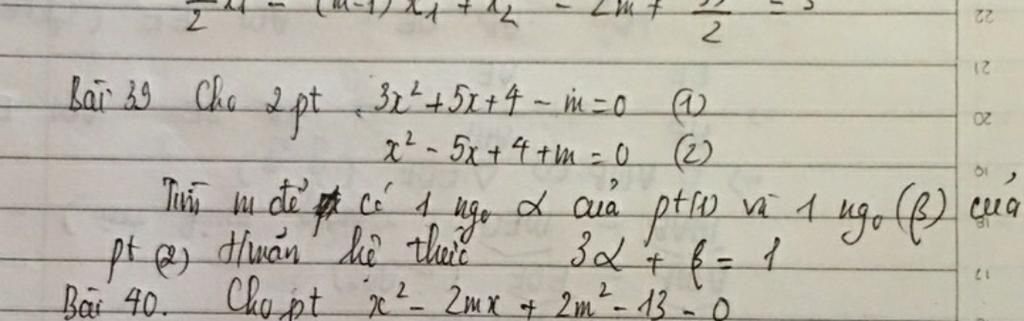 Bài 39 Cho 2 pt : 3x² + 5x + 4 - m = 0 (1)
x² - 5x + 4 + m = 0 (2)
Tìm m để có 1 ngo α của pt(1) và 1 ngo (β) của
pt (2) thuần hệ thức 3α + β = 1
Bài 40. Cho pt x² - 2mx + 2m² - 13 = 0